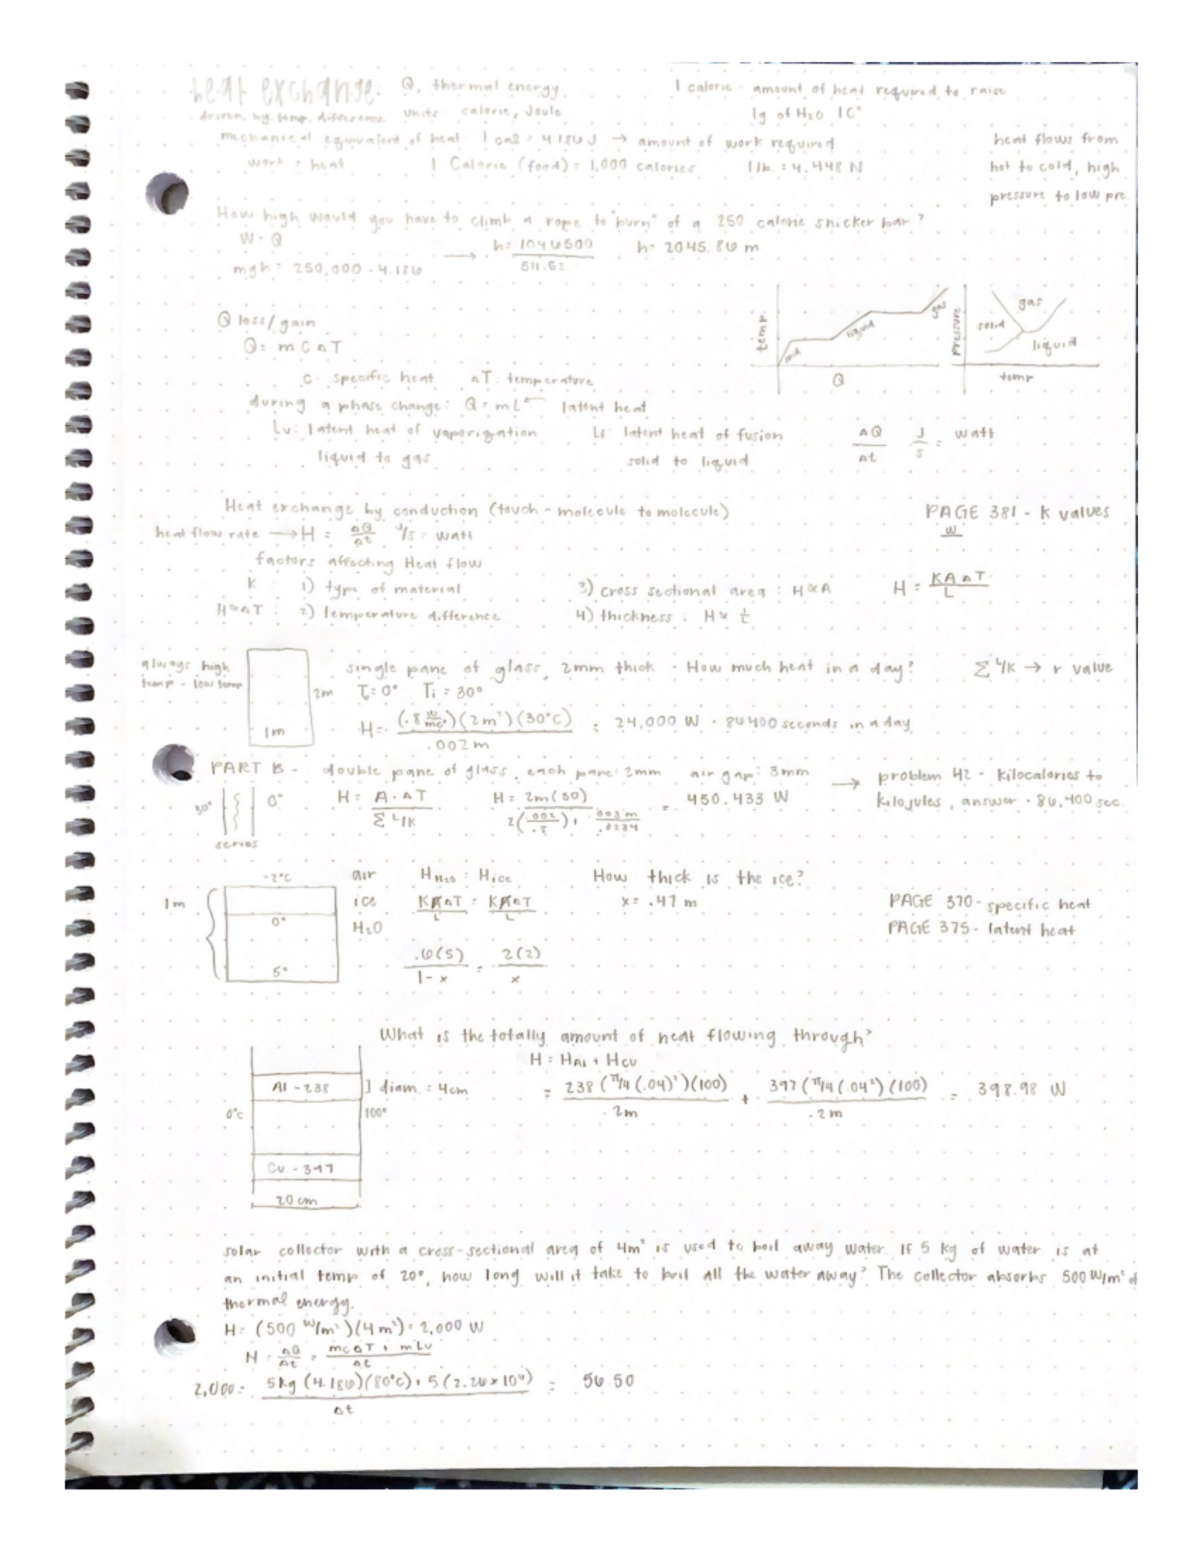 heat exchange: Q, thermal energy 1 calorie - amount of heat required to raise
driven by temp. difference units calorie, Joule 1g of H₂O 1C°
mechanical equivalent of heat: 1 cal = 4.186 J → amount of work required
work = heat 1 Calorie (food) = 1,000 calories 1 lb. = 4.448 N
heat flows from
hot to cold, high
pressure to low pre.
How high would you have to climb a rope to "burn" of a 250 calorie snicker bar?
W = Q
mgh = 250,000 · 4.186 → h = 1046500 / 511.52 h = 2045.86 m
Q loss/gain
Q = mC△T
c: specific heat △T: temperature
during a phase change: Q = mL ← latent heat
Lv: latent heat of vaporization Lf: latent heat of fusion △Q/△t J/s = watt
liquid to gas solid to liquid
temp.
solid
liquid
gas
Q
Pressure
solid
gas
liquid
temp
Heat exchange by conduction (touch - molecule to molecule) PAGE 381 - K values
heat flow rate → H = △Q/△t J/s = watt W
factors affecting Heat flow
K : 1) type of material 3) cross sectional area : H∝A H = KA△T / L
H∝△T : 2) temperature difference 4) thickness : H∝ 1/L
always high
temp - low temp
2m
1m
single pane of glass, 2mm thick - How much heat in a day? Σ L/K → r value
T₀ = 0° Ti = 30°
H = (.8 W/mc°)(2m²)(30°C) / .002m = 24,000 W · 86400 seconds in a day
PART B - double pane of glass, each pane: 2mm air gap: 3mm → problem 42 - kilocalories to
kilojules, answer · 86,400 sec.
30° 0°
series
H = A·△T / Σ L/K H = 2m(30) / 2(.002/.8) + .003m/.0234 = 450.433 W
-2°C air H H₂O = H ice How thick is the ice?
1m 0° ice KA△T/L = KA△T/L x = .47 m
5° H₂O
.6(5) / 1-x = 2(2) / x
PAGE 370 - specific heat
PAGE 375 - latent heat
What is the totally amount of heat flowing through?
H = HAl + HCu
Al - 238 ] diam. = 4cm
0°c 100°
Cu - 397
20 cm
= 238(π/4(.04)²)(100) / .2m + 397(π/4(.04²)(100) / .2m = 398.98 W
solar collector with a cross-sectional area of 4m² is used to boil away water. If 5 kg of water is at
an initial temp of 20°, how long will it take to boil all the water away? The collector absorbs 500 W/m² of
thermal energy.
H = (500 W/m²)(4m²) = 2,000 W
H = △Q/△t = mc△T + mLv / △t
2,000 = 5kg (4.186)(80°C) + 5(2.26×10⁶) / △t = 56.50